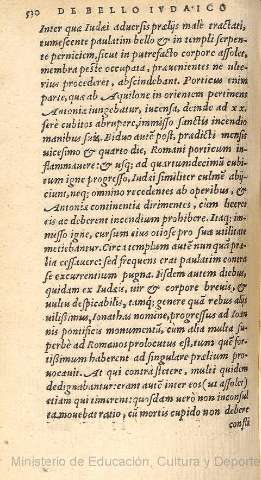 530 DE BELLO IVDAICO
Inter quæ Iudæi aduersis prælijs malè tractati,
tumescente paulatim bello & in templi serpen-
te perniciem, sicut in putrefacto corpore assolet,
membra peste occupata, præuenientes ne ulte-
rius procederet, abscindebant. Porticus enim
parte, quæ ab Aquilone in orientem pertinens
Antoniæ iungebatur, incensa, deinde ad xx.
ferè cubitos abrupere, immisso sanctis incendio
manibus suis. Biduo autē post, prædicti mensis
uicesimo & quarto die, Romani porticum in-
flammauere: & usq; ad quartumdecimū cubi-
tum igne progresso, Iudæi similiter culmē abij-
ciunt, neq; omnino recedentes ab operibus, &
Antoniæ continentia dirimentes, cùm liceret
eis ac deberent incendium prohibere. Itaq; im-
misso igne, cursum eius otiose pro sua utilitate
metiebantur. Circa templum autē nunquā præ-
lia cessauere: sed frequens erat paulatim contra
se excurrentium pugna. Iisdem autem diebus,
quidam ex Iudæis, uir & corpore breuis, &
uultu despicabilis, tamq; genere quā rebus alijs
uilissimus, Ionathas nomine, progressus ad Ioan
nis pontificis monumentū, cum alia multa su-
perbè ad Romanos prolocutus est, tum quē for-
tissimum haberent ad singulare prælium pro-
uocauit. At qui contra stetere, multi quidem
dedignabantur: erant autē inter eos (ut assolet)
etiam qui timerent: quosdam uerò non inconsul
ta mouebat ratio, cū mortis cupido non debere
consti
Ministerio de Educación, Cultura y Deporte